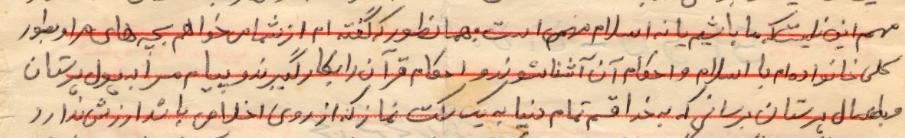 مهم این نیست که ما باشیم یا نه اسلام مهم است همانطور که گفته ام از شما می خواهم بچه های مرا و بطور
کلی خانواده ام با اسلام و احکام آن آشنا شوند و احکام قرآن را بکار گیرند و پیام مرا به پول پرستان
و پرستان برسانی که به خدا قسم تمام دنیا به یک رکعت نماز که از روی اخلاص باشد ارزش ندارد